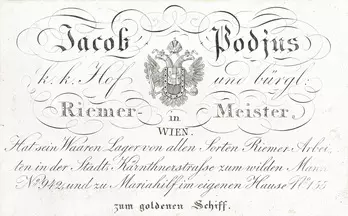 Jacob Podjus
k. k. Hof und bürgl:
Riemer- Meister
in
WIEN.
Hat sein Waaren Lager von allen Sorten Riemer Arbei-
ten in der Stadt Kärnthnerstrasse zum wilden Mann
No. 942 und zu Mariahilf im eigenen Hause No.
zum goldenen Schiff.